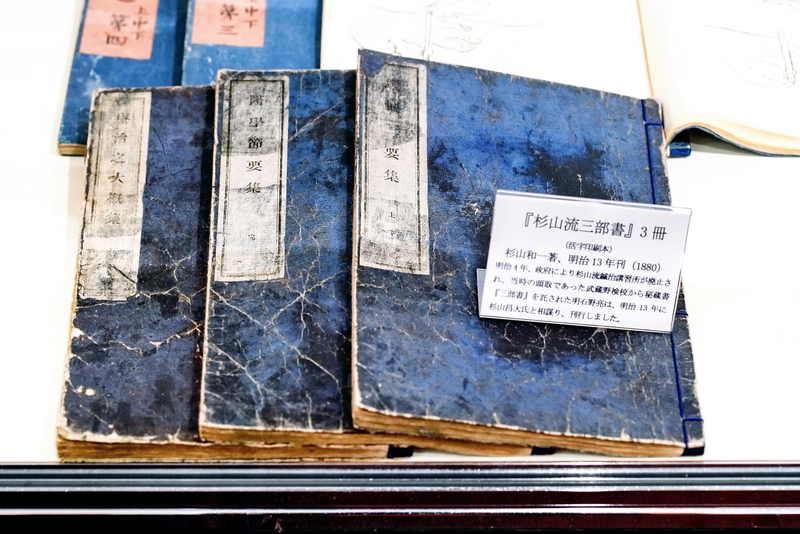 第四
上中下
第三
上中下
學治之大概集
醫學節要集
要集
上下
『杉山流三部書』3冊
(活字印刷本)
杉山和一著、明治13年刊(1880)
明治4年、政府により杉山流鍼治講習所が廃止さ
れ、当時の頭取であった武蔵野検校から秘蔵書
『三部書』を託された明石野亮は、明治13年に
杉山昌大氏と相謀り、刊行しました。